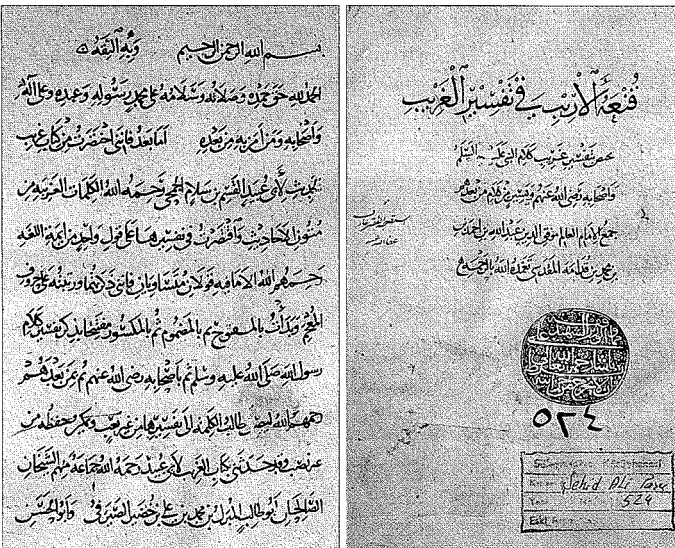 قنعة الأريب في تفسير الغريب
يختص بتفسير غريب كلام النبي عليه السلم
وأصحابه رضي الله عنهم وتفسير كلام من بعدهم
جمع الإمام العالم موفق الدين عبد الله بن أحمد بن
محمد بن قدامة المقدسي تغمده الله برحمته
٥٢٤
Süleymaniye Kütüphanesi
Şehid Ali Paşa
524
Eski
بسم الله الرحمن الرحيم وبه الثقة
الحمد لله حق حمده وصلاته وسلامه على محمد رسوله وعبده وعلى آله
وأصحابه ومن آمن به من بعده أما بعد فإنني اختصرت من كتاب غريب
الحديث لأبي عبيد القسم بن سلام الجمحي رحمه الله الكلمات الغريبة من
متون الأحاديث واقتصرت في تفسيرها على قول واحد من أيمة اللغة
رحمهم الله إلا ما فيه قولان متساويان فإنني ذكرتهما ورتبته على حروف
المعجم وبدأت بالمفتوح ثم بالمضموم ثم بالمكسور مفتتحا بذكر تفسير كلام
رسول الله صلى الله عليه وسلم ثم بأصحابه رضي الله عنهم ثم بمن بعدهم
رحمهم الله ليصل طالب الكلمة إلى تفسيرها من غير تعب ويمكن حفظه من
غير نصب وقد حدثني بكتاب الغريب لأبي عبيد رحمه الله جماعة منهم الشيخان
الثقة الجليل أبو طالب المبارك بن محمد بن علي بن خضير الصيرفي وأبو الحسن